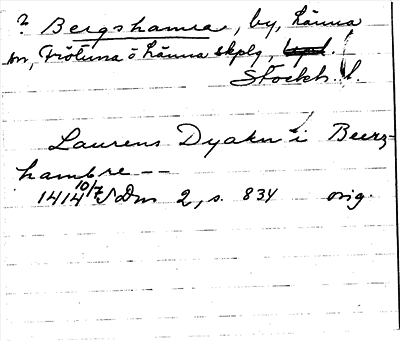 ? Bergshamra, by, Länna
sn, Frötuna o Länna skplg,
Stockh. l.
Laurens Dyakn i Beerg-
hambre --
1414 10/7 SDns 2, s. 834 orig.